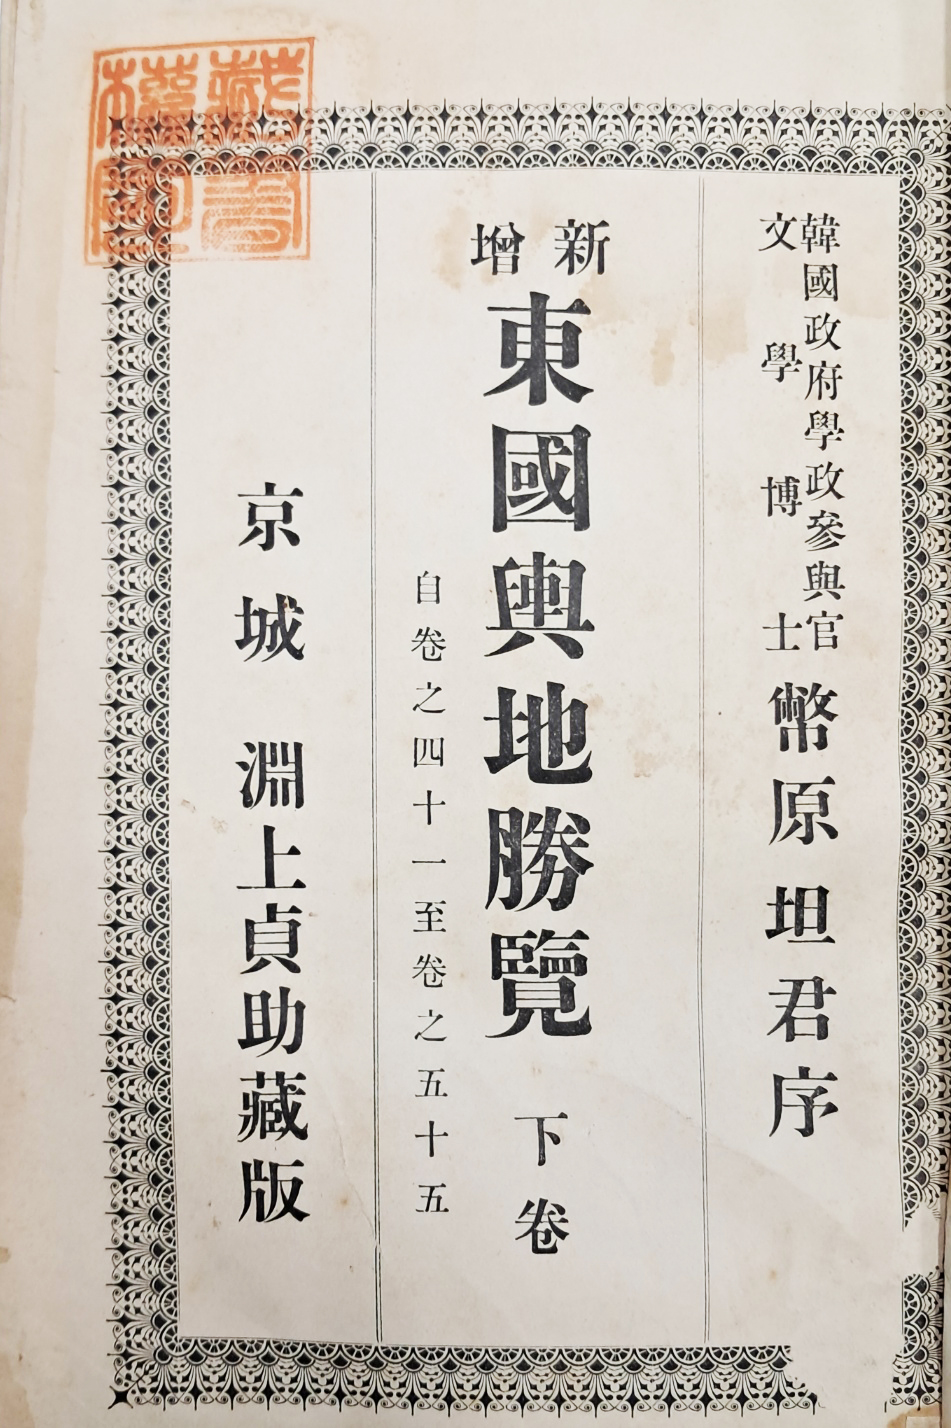 韓國政府學政參與官
文學博士
幣原坦君序
新增
東國輿地勝覽 下卷
自卷之四十一至卷之五十五
京城 淵上貞助藏版